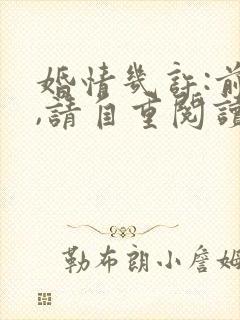 婚情幾許:前
,請自重閱讀
勒布朗小詹姆